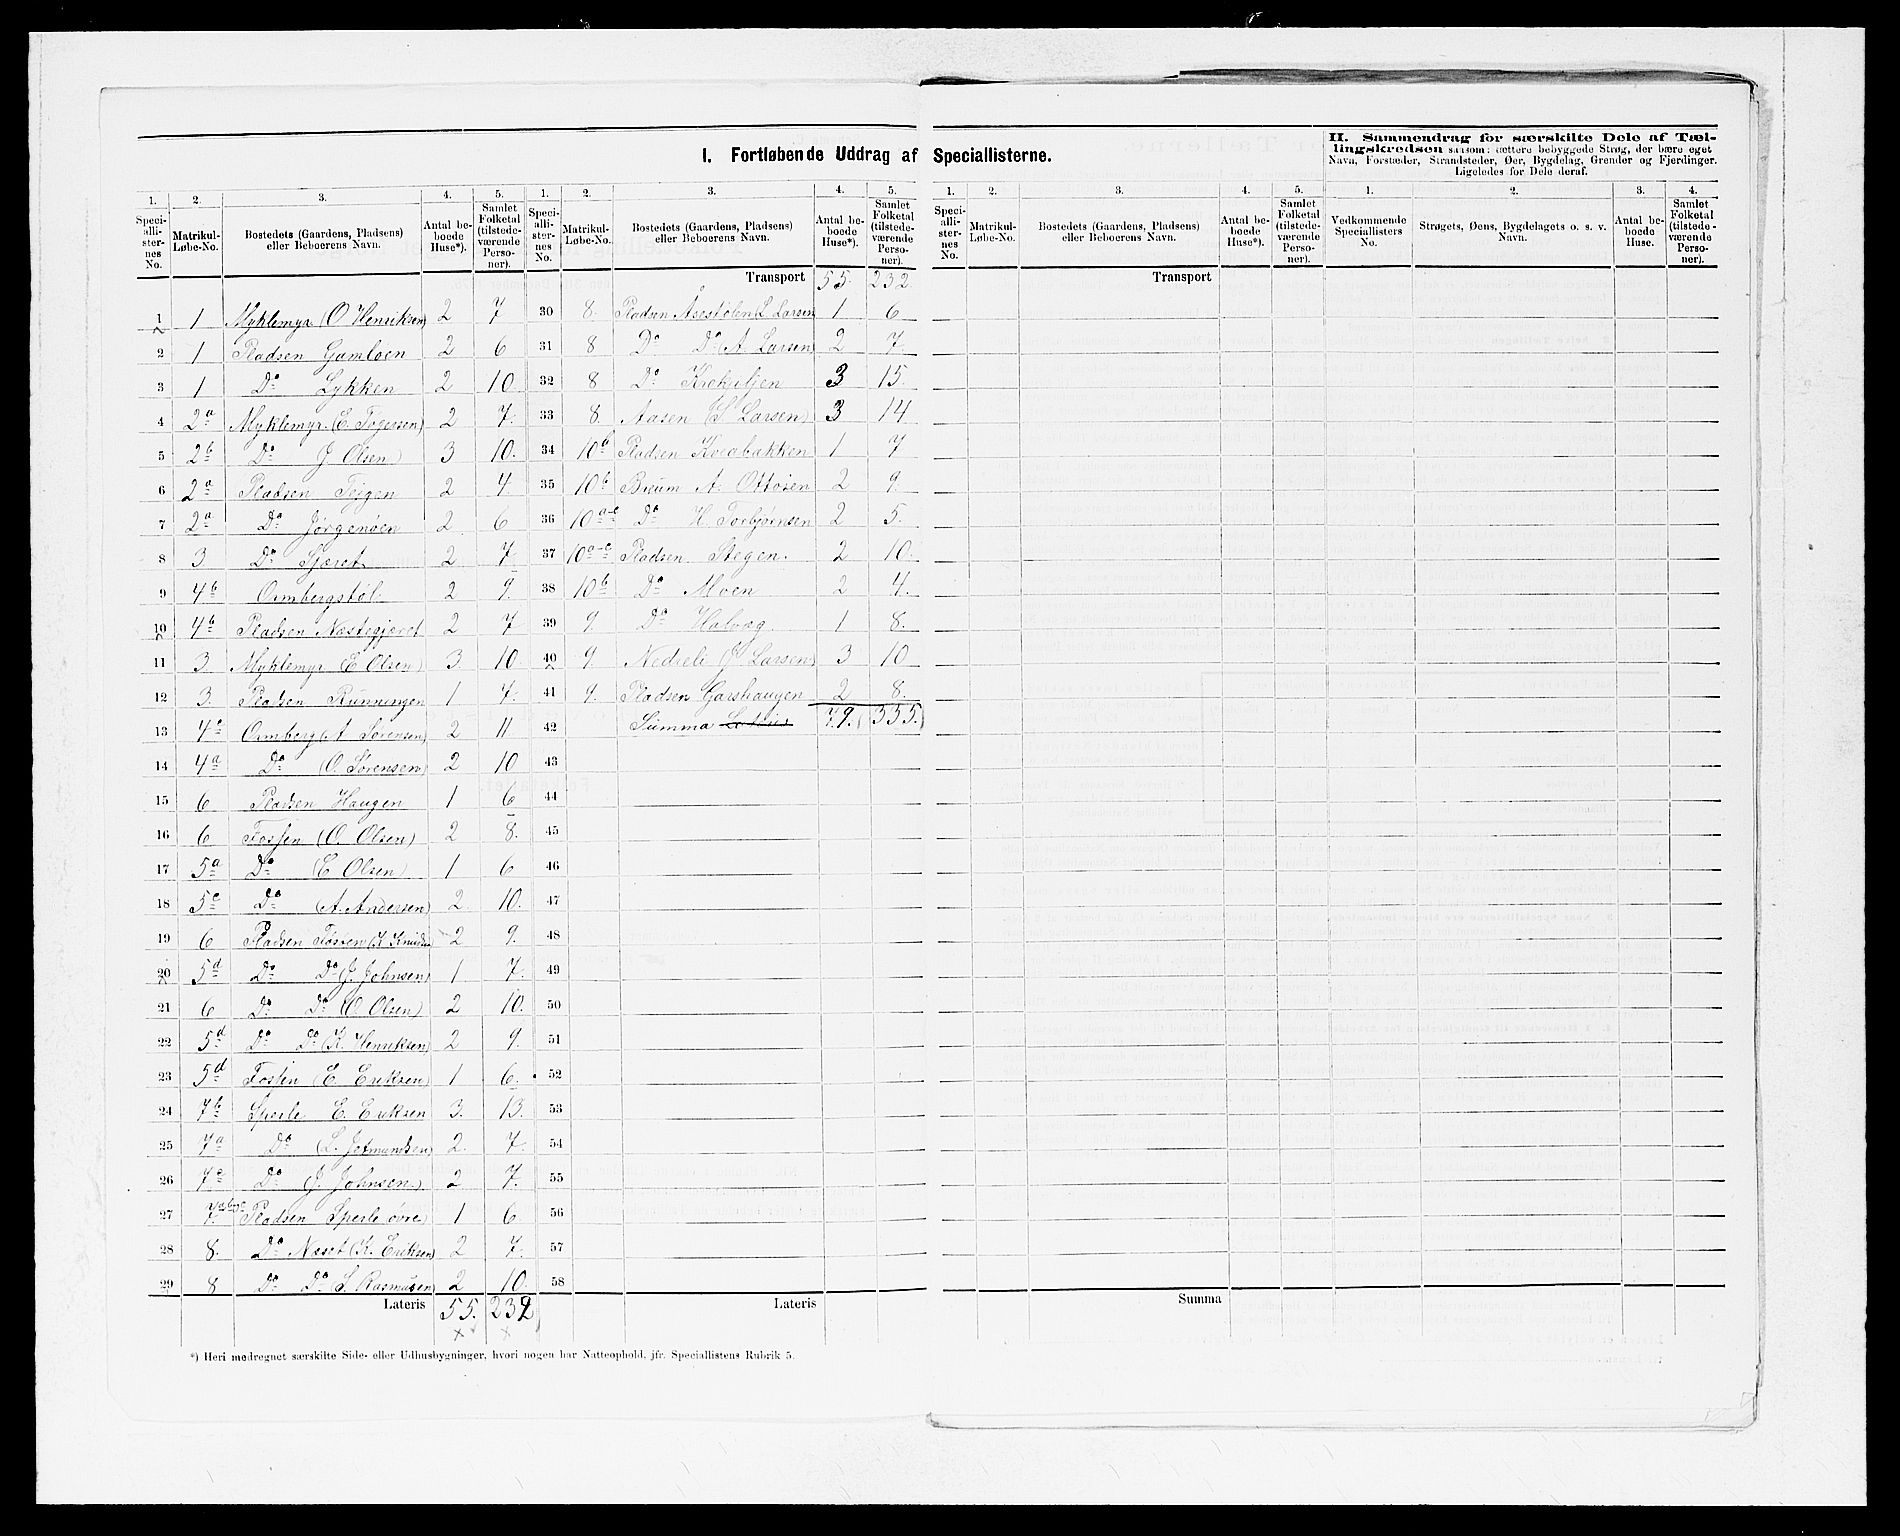 I. Fortløbende Uddrag af Speciallisterne.
II. Sammendrag for særskilte Dele af Tællingskredsen saasom: tættere bebyggede Strøg, der bære eget
Navn, Forstæder, Strandsteder, Øer, Bygdelag, Grender og Fjerdinger.
Ligeledes for Dele deraf.
1. 2. 3. 4. 5. 1. 2. 3. 4. 5. 1. 2. 3. 4. 5. 1. 2. 3. 4.
Speciallisternes No. Matrikul-Løbe-No. Bostedets (Gaardens, Pladsens) eller Beboerens Navn. Antal beboede Huse*). Samlet Folketal (tilstedeværende Personer).
Speciallisternes No. Matrikul-Løbe-No. Bostedets (Gaardens, Pladsens) eller Beboerens Navn. Antal beboede Huse*). Samlet Folketal (tilstedeværende Personer).
Speciallisternes No. Matrikul-Løbe-No. Bostedets (Gaardens, Pladsens) eller Beboerens Navn. Antal beboede Huse*). Samlet Folketal (tilstedeværende Personer).
Vedkommende Speciallisters No. Strøgets, Øens, Bygdelagets o. s. v. Navn. Antal beboede Huse. Samlet Folketal (tilstedeværende Personer).
1 1 Myklemyr (O Henriksen) 2 7
2 1 Pladsen Gamloen 2 6
3 1 Do Lykken 2 10.
4 2a Myklemyr (E. Tøgersen) 2 7.
5 2b Do J Olsen) 3 10.
6 2a Pladsen Teigen 2 4.
7 2a Do Jørgenøen 2 6
8 3 Do Sjæret 2 7
9 4b Ormbergstøl 2 9.
10 4b Pladsen Næstegjæret 2 7
11 3. Myklemyr (E Olsen) 3. 10.
12 3. Pladsen Runningen 1 7.
13 4c Ormberg (A Sørensen) 2 11
14 4a Do (O. Sørensen) 2 10
15 6 Pladsen Haugen 1 6
16 6 Fossen (O. Olsen) 2 8.
17 5a Do (E Olsen) 1 6
18 5c Do (A. Andersen) 2 10.
19 6 Pladsen Fossen (K Knudsen 2 9.
20 5d Do Do (J. Johnsen) 1 7.
21 6 Do Do (O Olsen) 2 10.
22 5d Do Do (K. Henriksen) 2 9.
23 5d Fossen (E. Eriksen) 1 6.
24 7b Sperle E. Eriksen 3. 13.
25 7a Do (L. Jetmundsen) 2. 7.
26 7c Do (J. Johnsen.) 2 7.
27 7abc Pladsen Sperle øvre) 1 6
28 8. Do Næset (K. Eriksen) 2 7.
29 8 Do Do S. Rasmusen 2 10.
Lateris 55. 232
Transport 55. 232.
30 8. Pladsen Åsestølen (L Larsen 1 6
31 8 Do Do (A. Larsen) 2 7.
32 8 Do Krekiljen 3 15.
33 8. Aasen (S Larsen) 3 14
34 10b Pladsen Kvidbakken 1 7
35 10b Bruum A. Ottosen 2 9.
36 10a-c Do H. Torbjørnsen 2 5.
37 10a-c Pladsen Stegen. 2 10.
38 10b Do Moen 2 4.
39 9. Do Halvag 1 8.
40 9. Nedreli (J Larsen) 3 10
41 9. Pladsen Garshaugen 2 8.
42 Summa Lateris 79. (335.)
43
44
45
46
47
48
49
50
51
52
53
54
55
56
57
58
Lateris
Transport
Summa
*) Heri medregnet særskilte Side- eller Udhusbygninger, hvori nogen har Natteophold, jfr. Speciallistens Rubrik 5.